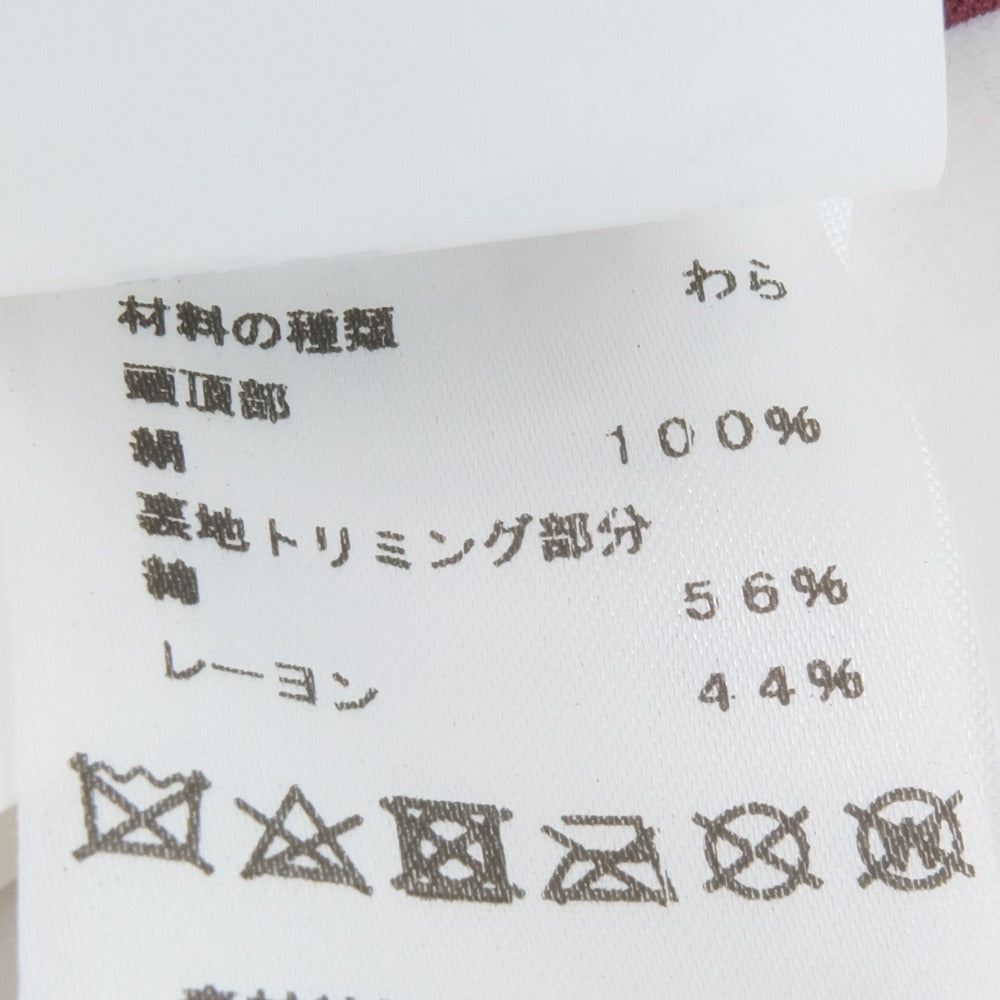 材料の種類 わら
頭頂部
綿 100%
裏地トリミング部分
綿 56%
レーヨン 44%